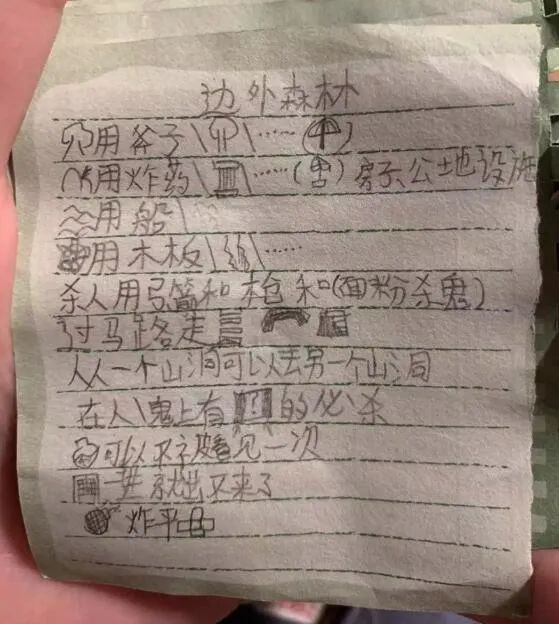 边外森林
用斧子\……()
用炸药\……()房子公地设施
用船\
用木板\……
杀人用弓箭和枪和(面粉杀鬼)
过马路走
从一个山洞可以去另一个山洞
在人\鬼上有的必杀
可以不被看见一次
一进就出不来了
炸平